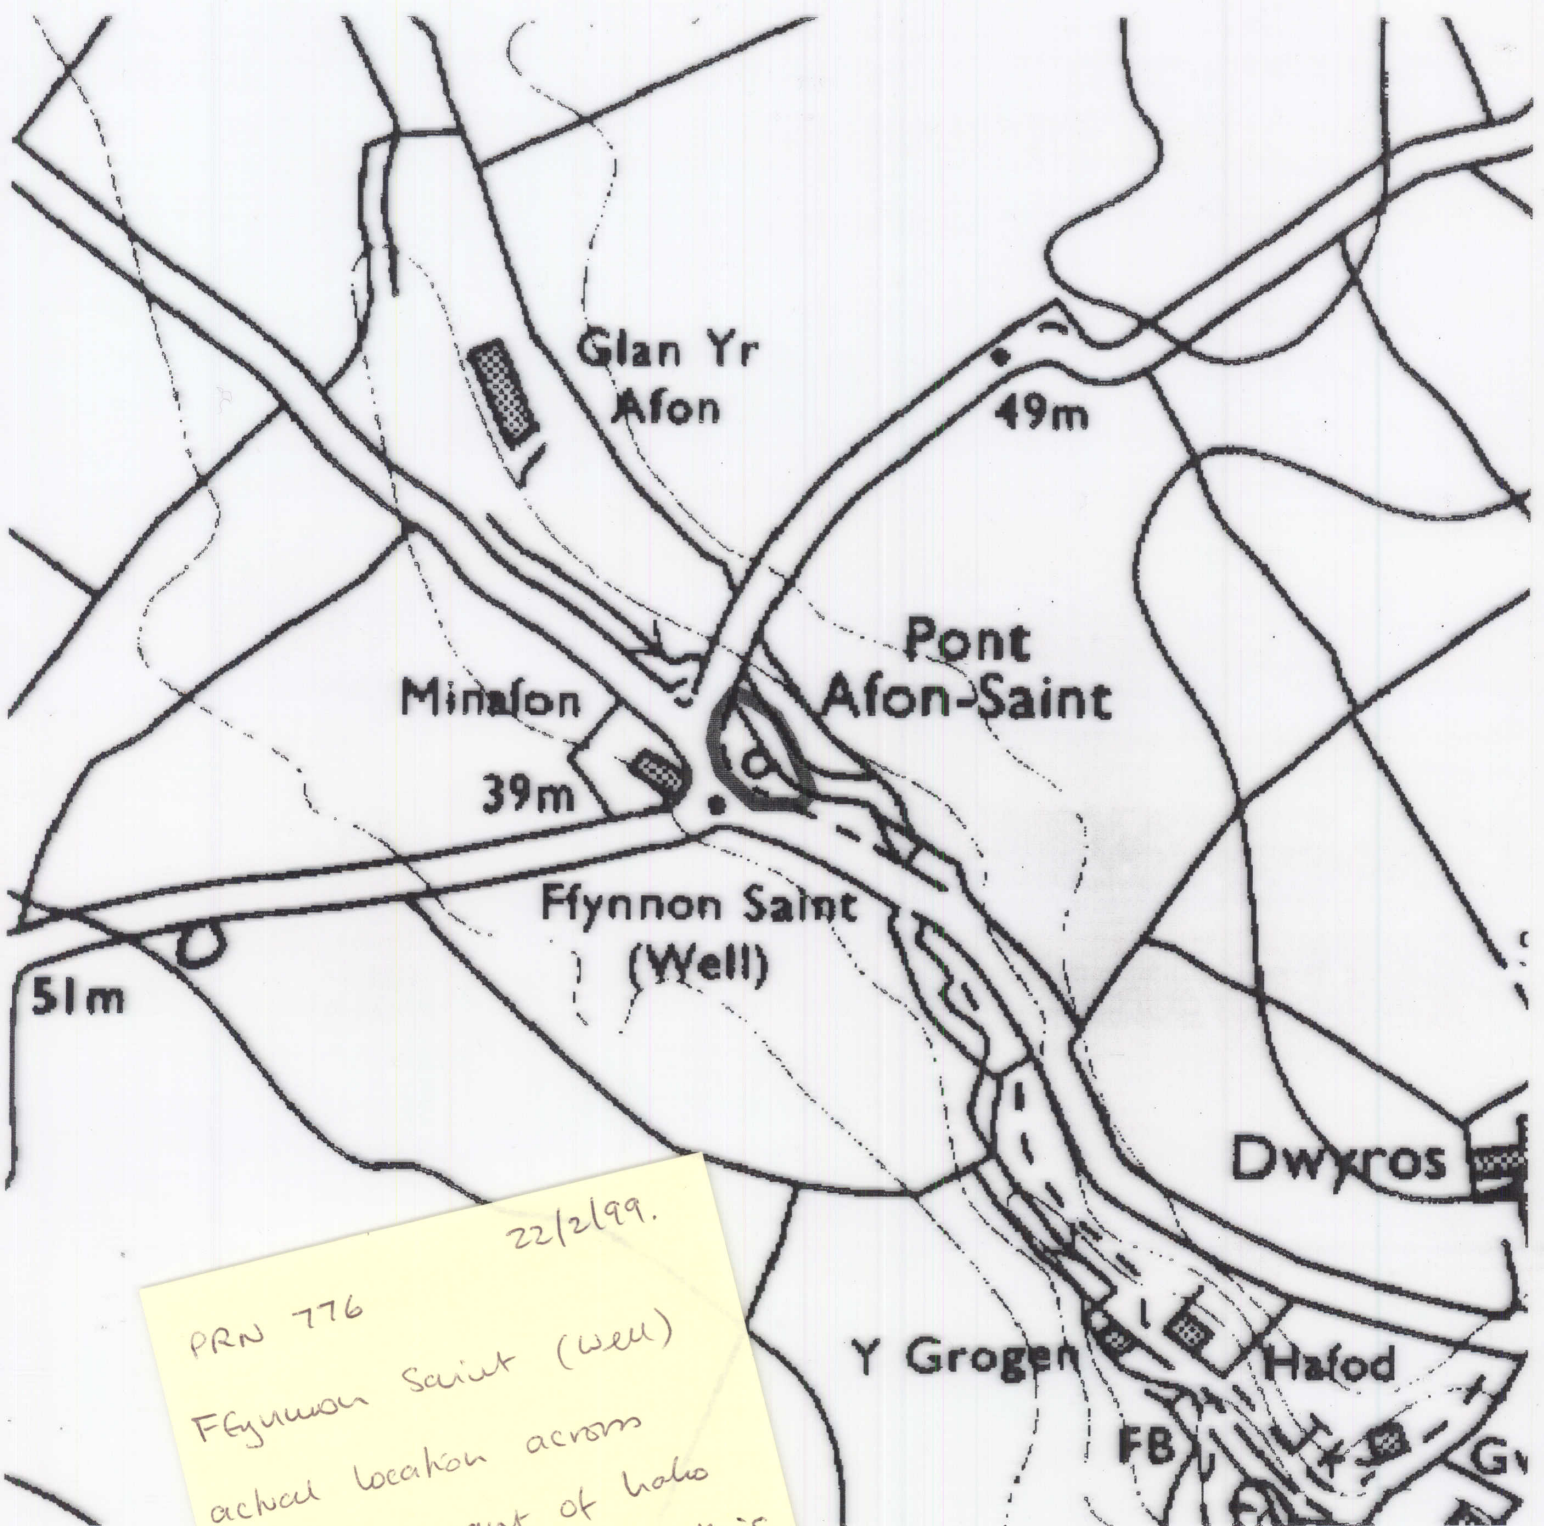 Glan Yr
Afon
49m
Pont
Afon-Saint
Minafon
39m
Ffynnon Saint
(Well)
51m
Dwyros
Y Grogen
Hafod
FB
22/2/99.
PRN 776
Ffynnon Saint (well)
actual location across
of